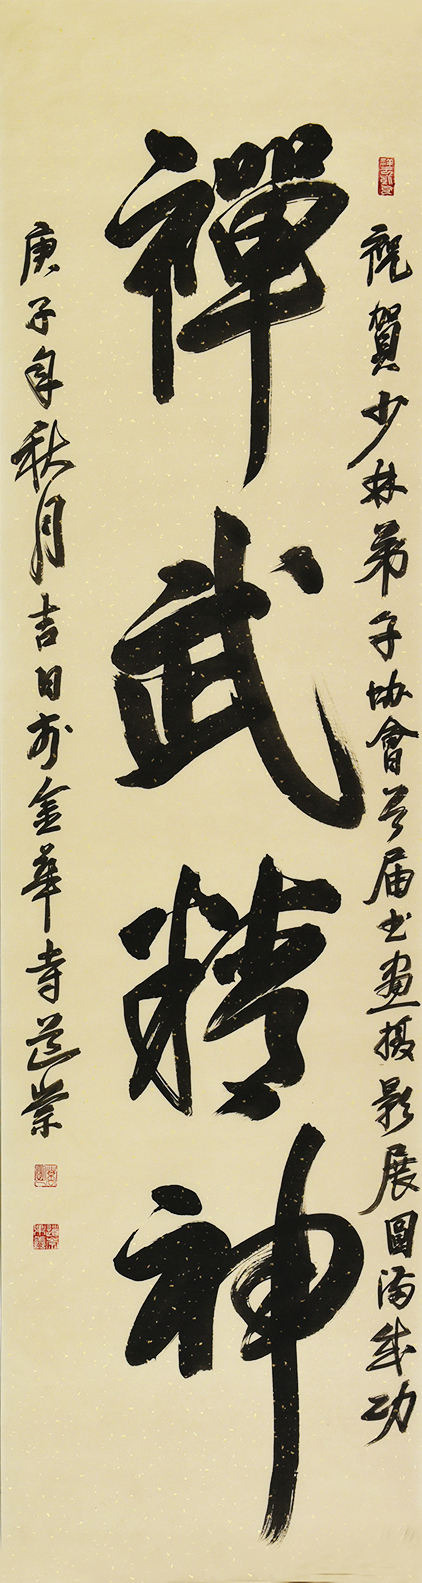 祝賀少林弟子协會首届书畫摄影展圓满成功
禪武精神
庚子年秋月吉日於金華寺道崇